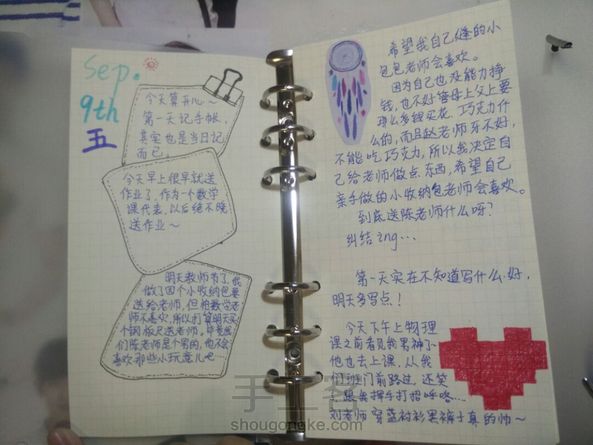 Sep.
9th
五
今天算开心~
第一天记手帐,
其实也是当日记
而已.
今天早上很早就送
作业了,作为一个数学
课代表,以后绝不晚
送作业~
明天教师节了,我
做了四个小收纳包要
送给老师,但怕数学老
师不喜欢,所以打算明天买
个钢板尺送老师,毕竟我
们陈老师是个男的,也不会
喜欢那些小玩意儿吧
希望我自己缝的小
包包老师会喜欢。
因为自己也没能力挣
钱,也不好管母上父上要
那么多钱买花、巧克力什
么的,而且赵老师牙不好,
不能吃巧克力,所以我决定自
己给老师做点东西,希望自己
亲手做的小收纳包老师会喜欢。
到底送陈老师什么呀?
纠结ing...
第一天实在不知道写什么好,
明天多写点!
今天下午上物理
课之前看见我男神了
他也去上课,从我
们班门前路过,还笑
跟我挥手打招呼咚...
刘老师穿蓝衬衫黑裤子真的帅~
手工客
shougongke.com